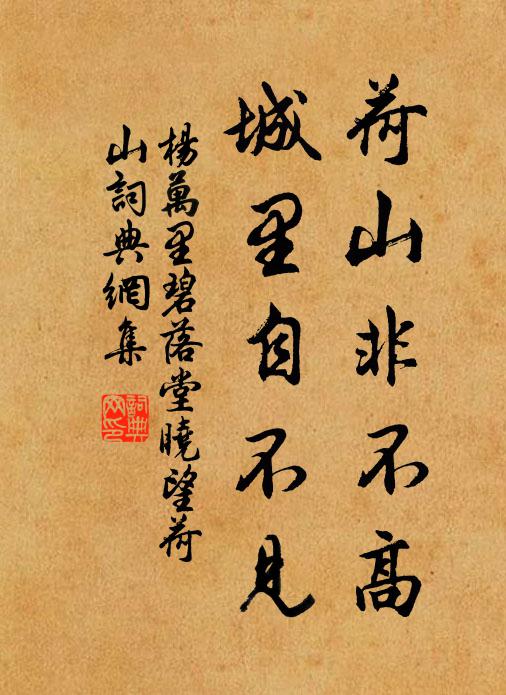 荷山非不高
城里自不见
楊萬里碧落堂曉望荷
山詞典網集
詞典
网印